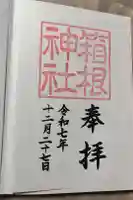 奉拝
箱根
神社
令和七年
十二月二十七日